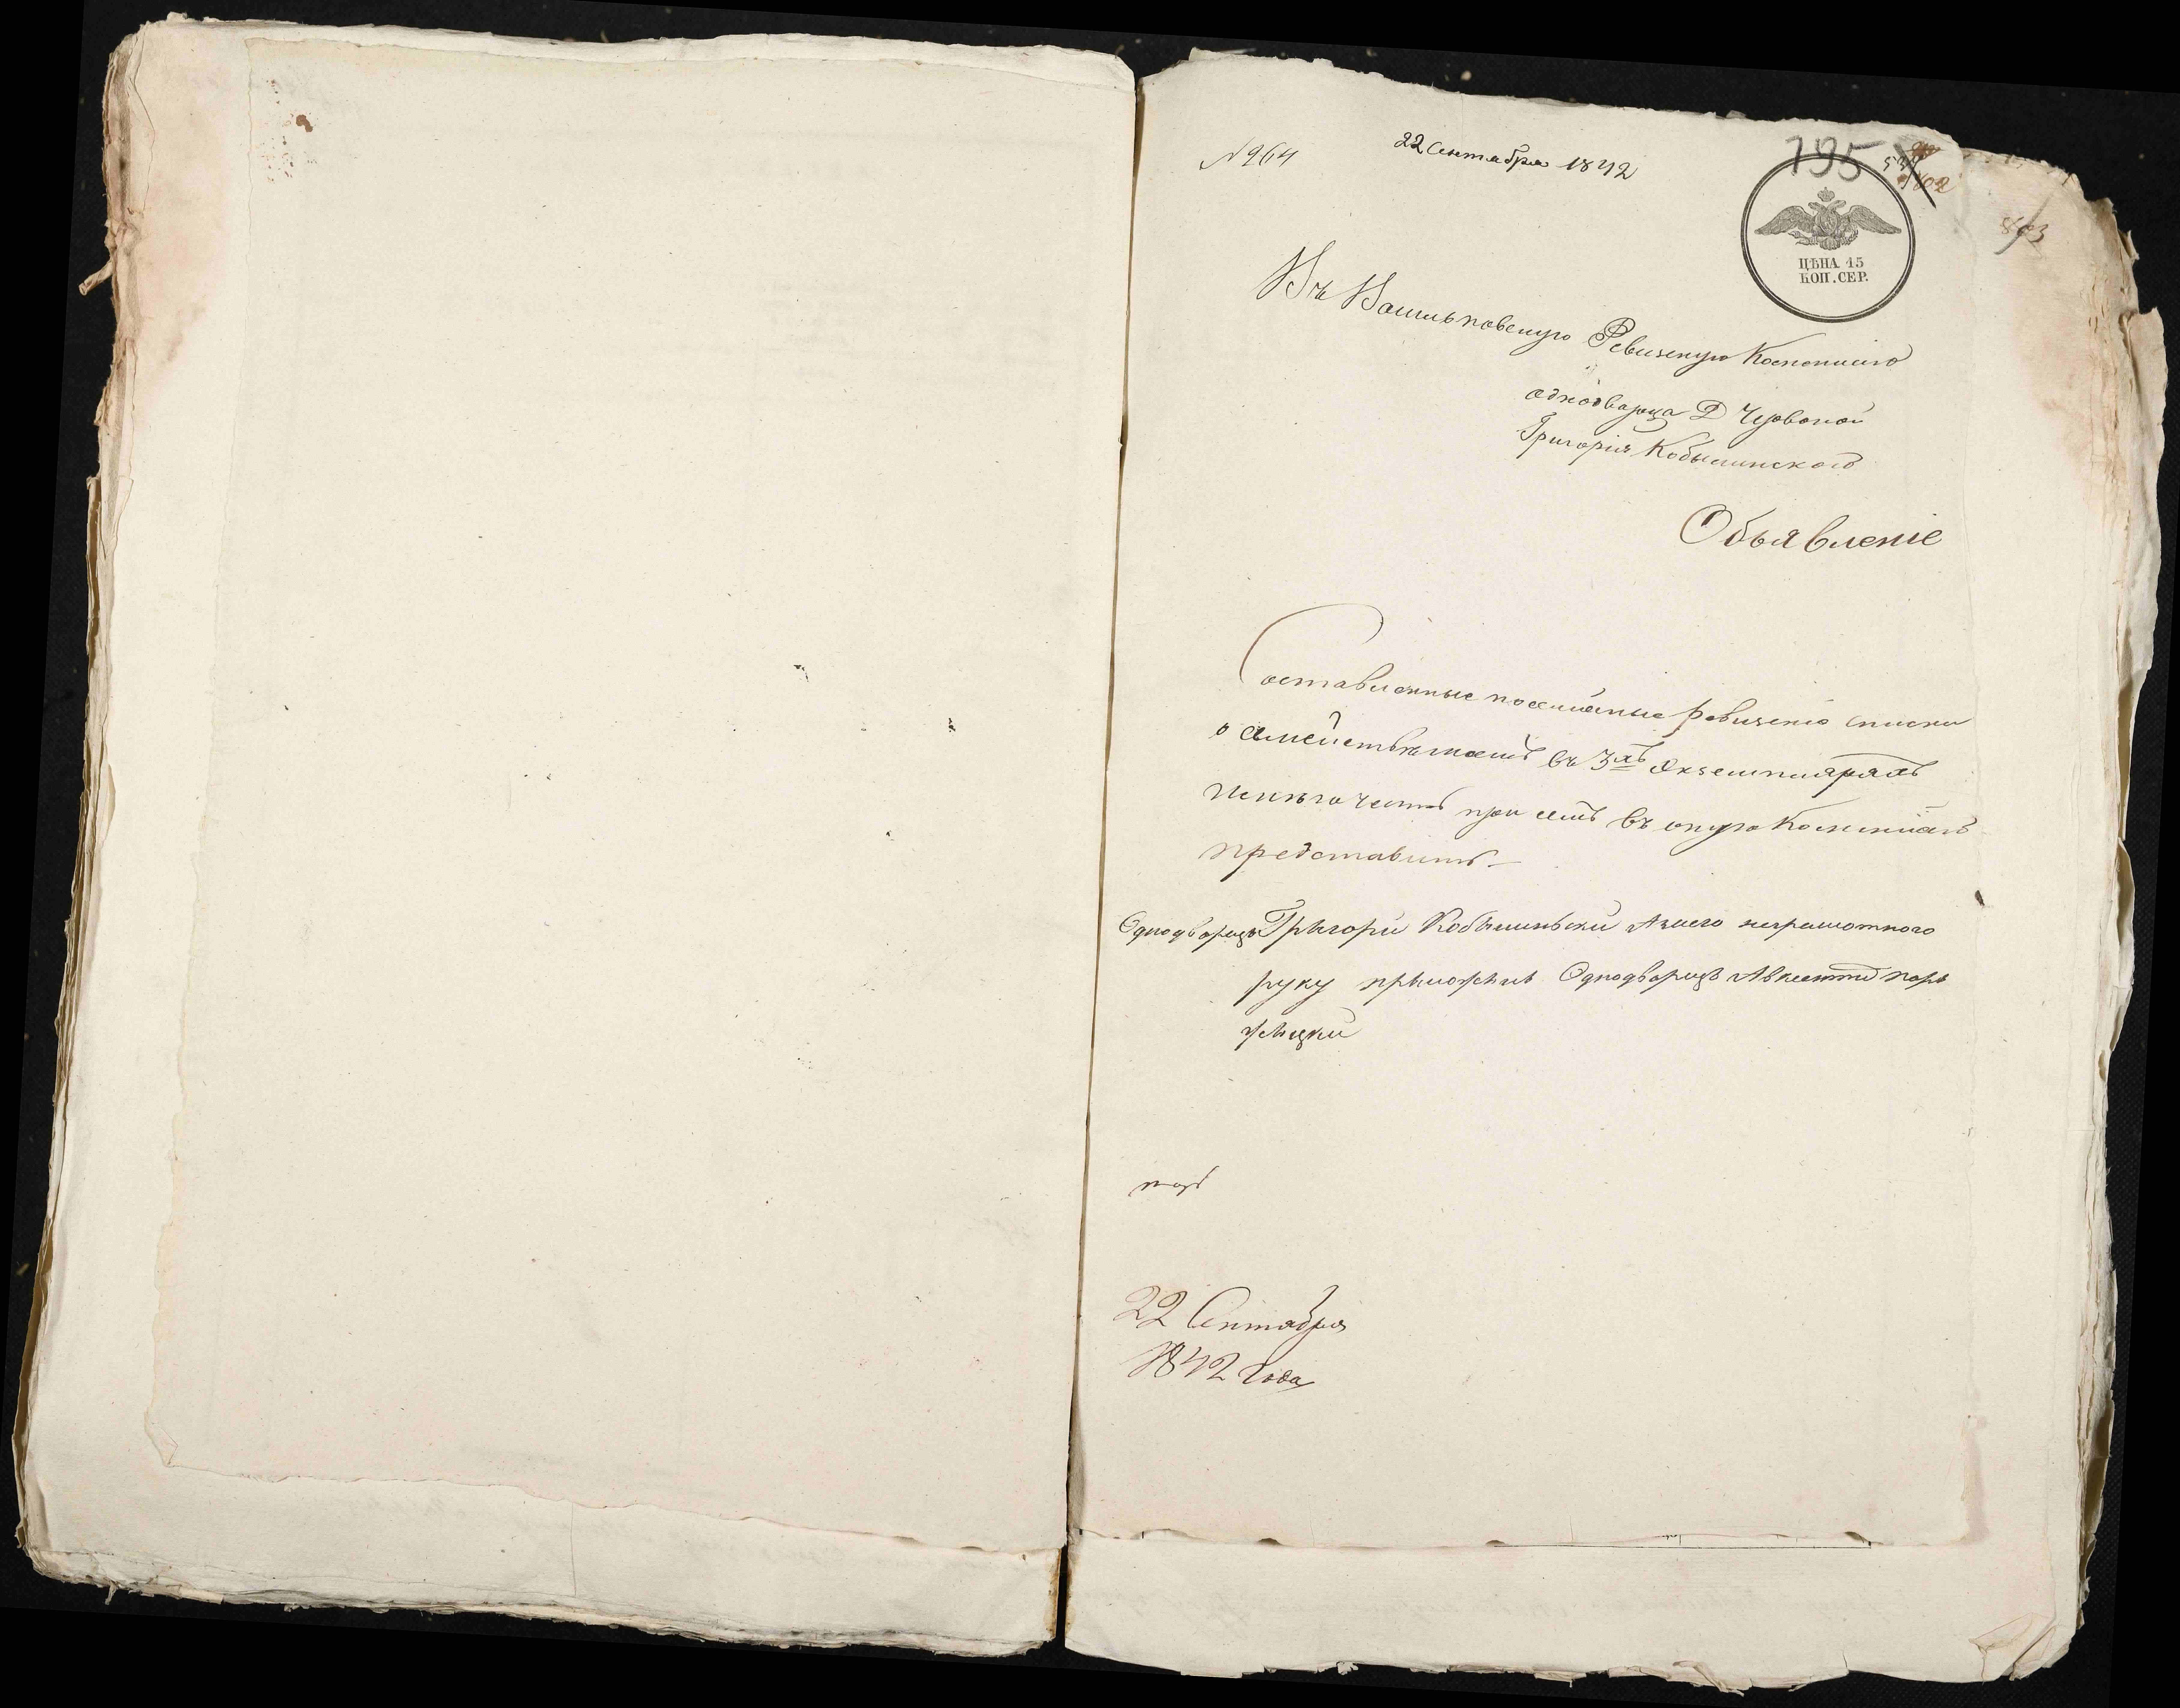 № 964
22 Сентября 1842
795
ЦѢНА 15
КОП. СЕР.
Въ Васильковскую Ревизскую Коммисию
однодворца Д Червоной
Григорія Кобылинского
Объявленіе
Составленные посемейные ревизскіе списки
о семействѣ моемъ въ 3хъ экземплярахъ
при семъ въ оную Коммисію
представить
Однодворецъ Грыгори Кобылиньски Азаего неграмотного
руку прыложилъ Однодворецъ
22 Сентября
1842 года